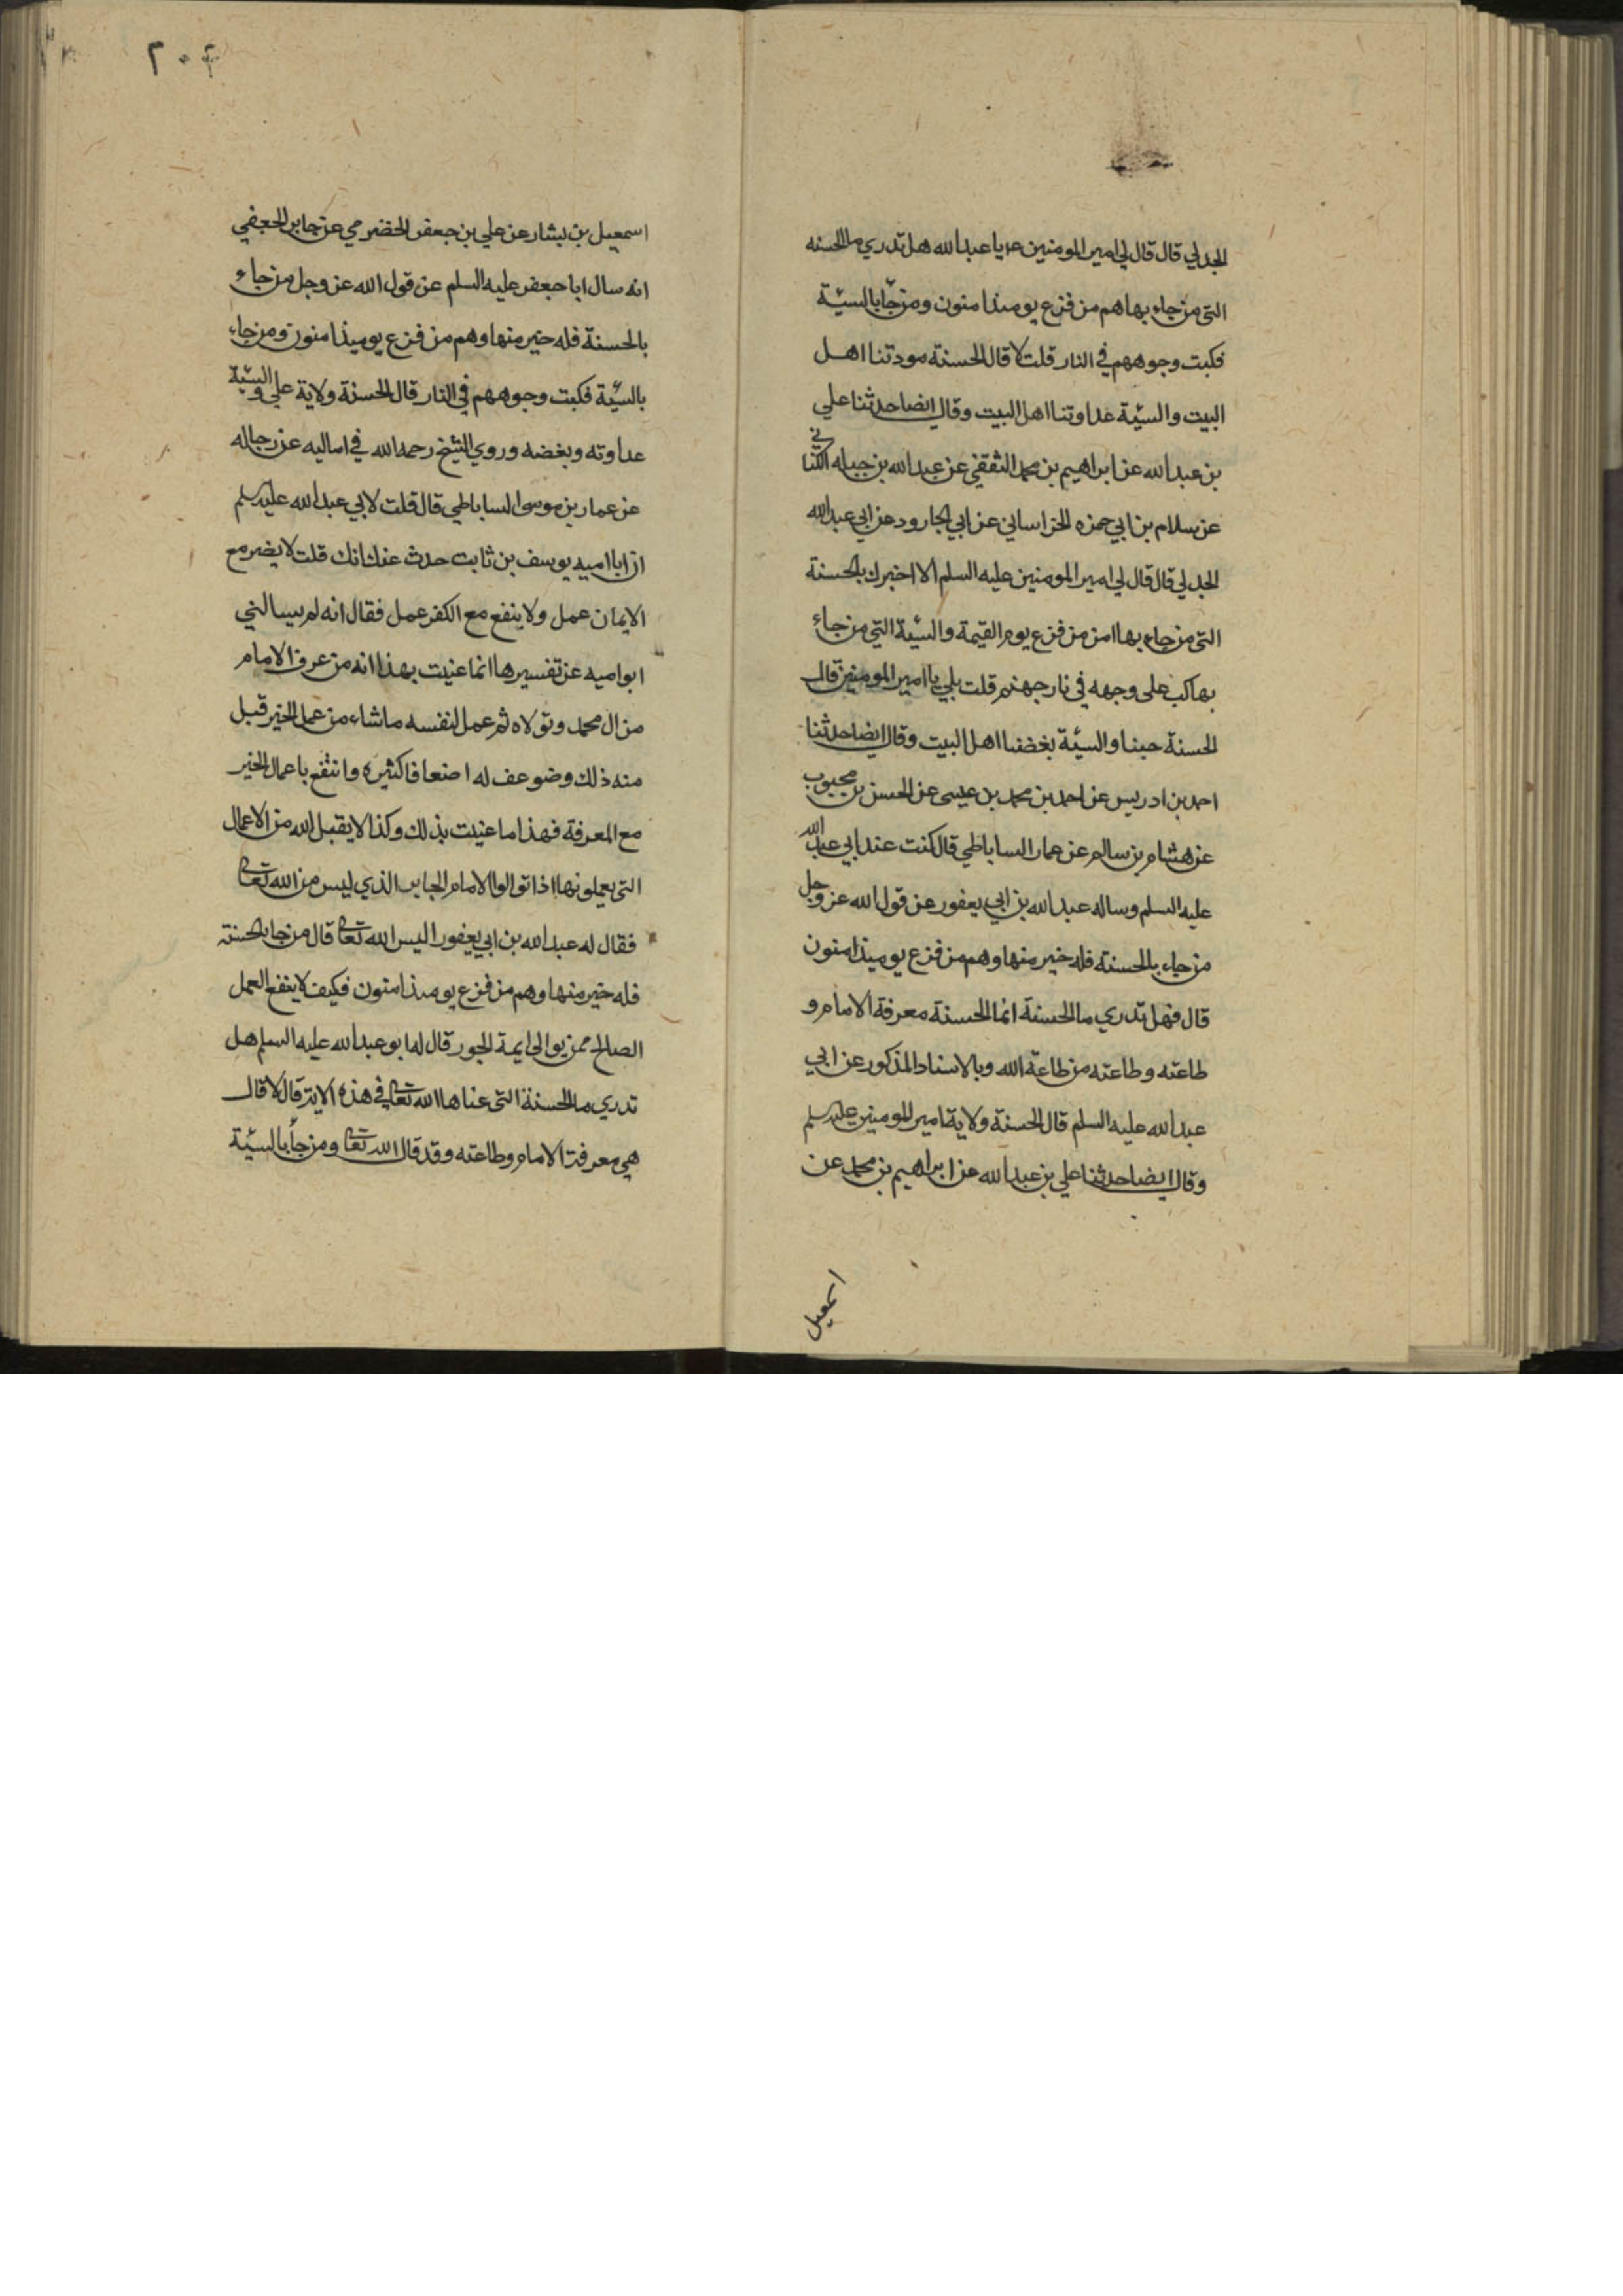 الجدلي قال قال لي امير المومنين ع يا عبدالله هل تدري ما الحسنه
التي من جاء بها هم من فزع يومئذ امنون ومن جا بالسيئة
فكبت وجوههم في النار قلت لا قال الحسنة مودتنا اهل
البيت والسيئة عداوتنا اهل البيت وقال ايضا حدثنا علي
بن عبدالله عن ابراهيم بن محمد الثقفي عن عبدالله بن جبله الكناني
عن سلام بن ابي حمزه الخراساني عن ابي الجارود عن ابي عبدالله
الجدلي قال قال لي امير المومنين عليه السلم الا اخبرك بالحسنة
التي من جاء بها امن من فزع يوم القيمة والسيئة التي من جاء
بها كب على وجهه في نار جهنم قلت بلي يا امير المومنين قال
الحسنة حبنا والسيئة بغضنا اهل البيت وقال ايضا حدثنا
احمد بن ادريس عن احمد بن محمد بن عيسى عن الحسن بن محبوب
عن هشام بن سالم عن عمار الساباطي قال كنت عند ابي عبدالله
عليه السلم وساله عبدالله بن ابي يعفور عن قول الله عز وجل
من جاء بالحسنة فله خير منها وهم من فزع يوميذ امنون
قال فهل تدري ما الحسنة انما الحسنة معرفة الامام و
طاعته وطاعته من طاعة الله وبالاسناد المذكور عن ابي
عبدالله عليه السلم قال الحسنة ولاية امير المومنين عليه سلم
وقال ايضا حدثنا علي بن عبدالله عن ابراهيم بن محمد عن
اسمعيل
٢٠٤
اسمعيل بن بشار عن علي بن جعفر الحضرمي عن جابر الجعفي
انه سال ابا جعفر عليه السلم عن قول الله عز وجل من جاء
بالحسنة فله خير منها وهم من فزع يوميذ امنون ومن جاء
بالسيئة فكبت وجوههم في النار قال الحسنة ولاية علي والسيئة
عداوته وبغضه وروي الشيخ رحمه الله في اماليه عن رجاله
عن عمار بن موسى الساباطي قال قلت لابي عبدالله عليه سلم
ان ابا اميه يوسف بن ثابت حدث عنك انك قلت لا يضر مع
الايمان عمل ولا ينفع مع الكفر عمل فقال انه لم يسالني
ابو اميه عن تفسيرها انما عنيت بهذا انه من عرف الامام
من ال محمد وتولاه ثم عمل لنفسه ما شاء من عمل الخير قبل
منه ذلك وضوعف له اضعافا كثيره وانتفع باعمال الخير
مع المعرفة فهذا ما عنيت بذلك وكذا لا يقبل الله من الاعمال
التي يعملونها اذا توالوا الامام الجاير الذي ليس من الله تعالى
فقال له عبدالله بن ابي يعفور اليس الله تعالى قال من جا بالحسنة
فله خير منها وهم من فزع يومئذ امنون فكيف لا ينفع العمل
الصالح ممن يوالي ايمة الجور قال له ابو عبدالله عليه السلم هل
تدري ما الحسنة التي عناها الله تعالى في هذه الاية قال لا قال
هي معرفة الامام وطاعته وقد قال الله تعالى ومن جا بالسيئة